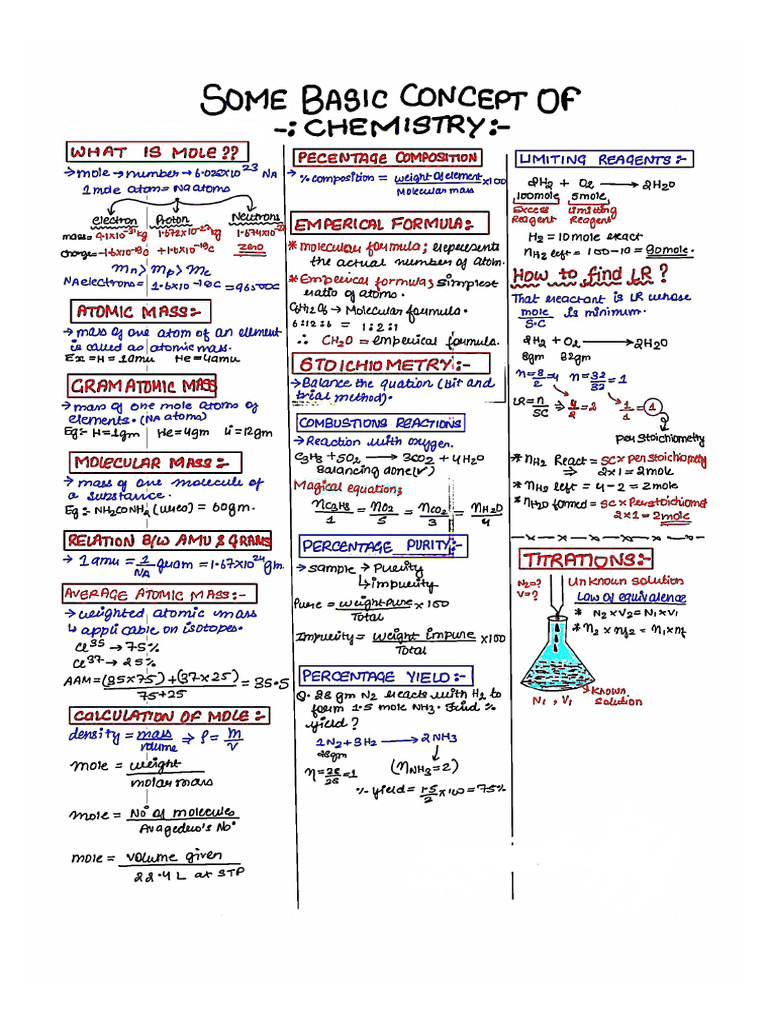 SOME BASIC CONCEPT OF
-: CHEMISTRY:-
WHAT IS MOLE??
→ mole → number → 6.025X10²³ NA
1 mole atom = NA atoms
electron Proton Neutrons
mass= 9.1X10⁻³¹ kg 1.672X10⁻²⁷ kg 1.674X10⁻²
charge= -1.6X10⁻¹⁹C +1.6X10⁻¹⁹C zero
mn > mp > me
NA electrons = 1.6X10⁻¹⁹C = 96500C
ATOMIC MASS:-
→ mass of one atom of an element
is called as atomic mass.
Ex = H = 1amu He = 4amu
GRAM ATOMIC MASS
→ mass of one mole atoms of
elements. (NA atoms)
Eg:- H=1gm He=4gm Li=12gm
MOLECULAR MASS:-
→ mass of one molecule of
a substance.
Eg:- NH₂CONH₂ (urea) = 60gm.
RELATION B/W AMU & GRAMS
→ 1 amu = 1/NA gram = 1.67X10²⁴ gm.
AVERAGE ATOMIC MASS:-
→ weighted atomic mass
↳ applicable on isotopes.
Cl³⁵ → 75%
Cl³⁷ → 25%
AAM = (35X75) + (37X25) / 75+25 = 35.5
CALCULATION OF MOLE:-
density = mass/volume ⇒ ρ = m/v
mole = weight / molar mass
mole = No of molecules / Avagedro's No
mole = volume given / 22.4 L at STP
PECENTAGE COMPOSITION
→ % composition = weight of element / Molecular mass X100
EMPERICAL FORMULA:-
* molecular formula; represents
the actual number of atom.
* Emperical formula; simplest
ratio of atoms.
C₆H₁₂O₆ → Molecular formula.
6:12:6 = 1:2:1
∴ CH₂O = emperical formula.
STOICHIOMETRY:-
→ Balance the quation (Hit and
trial method).
COMBUSTIONS REACTIONS
→ Reaction with oxygen.
C₃H₈ + 5O₂ → 3CO₂ + 4H₂O
Balancing done(✓)
Magical equation;
nC₃H₈/1 = nO₂/5 = nCO₂/3 = nH₂O/4
PERCENTAGE PURITY:-
→ sample → Purity
↳ impurity
Pure = weight pure / Total X 100
Impurity = weight impure / Total X100
PERCENTAGE YIELD:-
Q. 28 gm N₂ reacts with H₂ to
form 1.5 mole NH₃. find %
yield?
1N₂ + 3H₂ → 2NH₃
28gm
n = 28/28 = 1 (nNH₃ = 2)
% yield = 1.5/2 X 100 = 75%
LIMITING REAGENTS:-
2H₂ + O₂ → 2H₂O
100mole 5mole
Excess Limitting
Reagent Reagent
H₂ = 10 mole exact
nH₂ left = 100-10 = 90mole.
HOW to find LR?
That reactant is LR whose
mole / S.C is minimum.
2H₂ + O₂ → 2H₂O
8gm 32gm
n = 8/2 = 4 n = 32/32 = 1
LR = n/SC ⇒ 4/2 = 2 1/1 = 1
per Stoichiometry
* nH₂ React = SC X per Stoichiometry
⇒ 2X1 = 2mole
* nH₂ left = 4-2 = 2mole
* nH₂O formed = SC X Per stoichiomet
2X1 = 2mole
TITRATIONS:-
N₂=? Unknown solution
V=? Law of equivalence
* N₂ X V₂ = N₁ X V₁
* N₂ X nf₂ = N₁ X nf
Known
solution
N₁, V₁